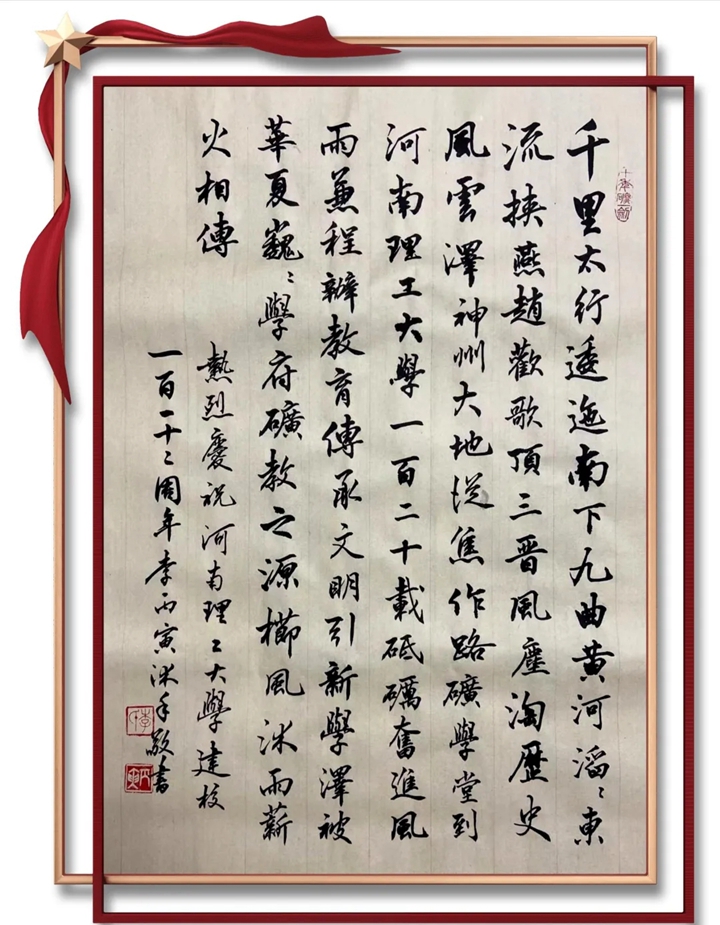 千里太行逶迤南下九曲黄河滔〻東
流挟燕趙歡歌頂三晋風塵淘歷史
風雲澤神州大地從焦作路礦學堂到
河南理工大學一百二十載砥礪奮進風
雨兼程辦教育傳承文明引新學澤被
華夏巍〻學府礦教之源櫛風沐雨薪
火相傳
熱烈慶祝河南理工大學建校
一百一十二周年李丙寅沐手敬書